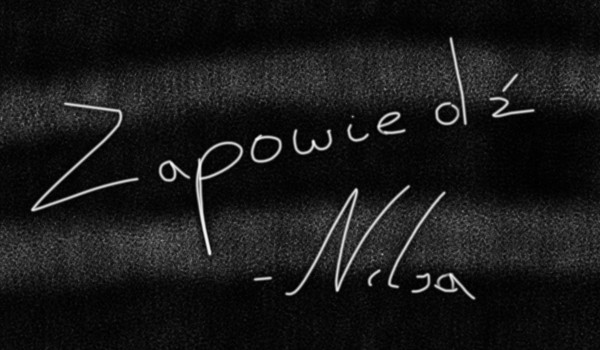 Zapowiedź
- Nilsa